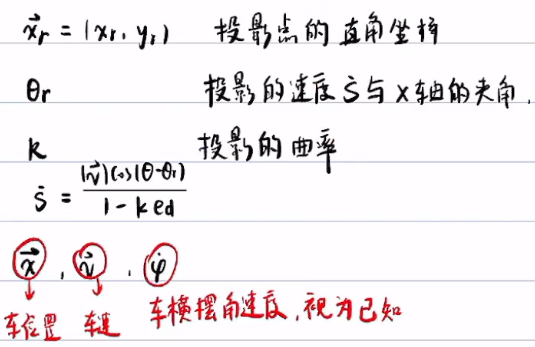 x⃗r = (xr, yr) 投影点的直角坐标
θr 投影的速度 ṡ 与 x 轴的夹角.
k 投影的曲率
ṡ = |v⃗|cos(θ-θr) / 1-ked
x⃗, v⃗, φ̇
车位置 车速 车横摆角速度,视为已知